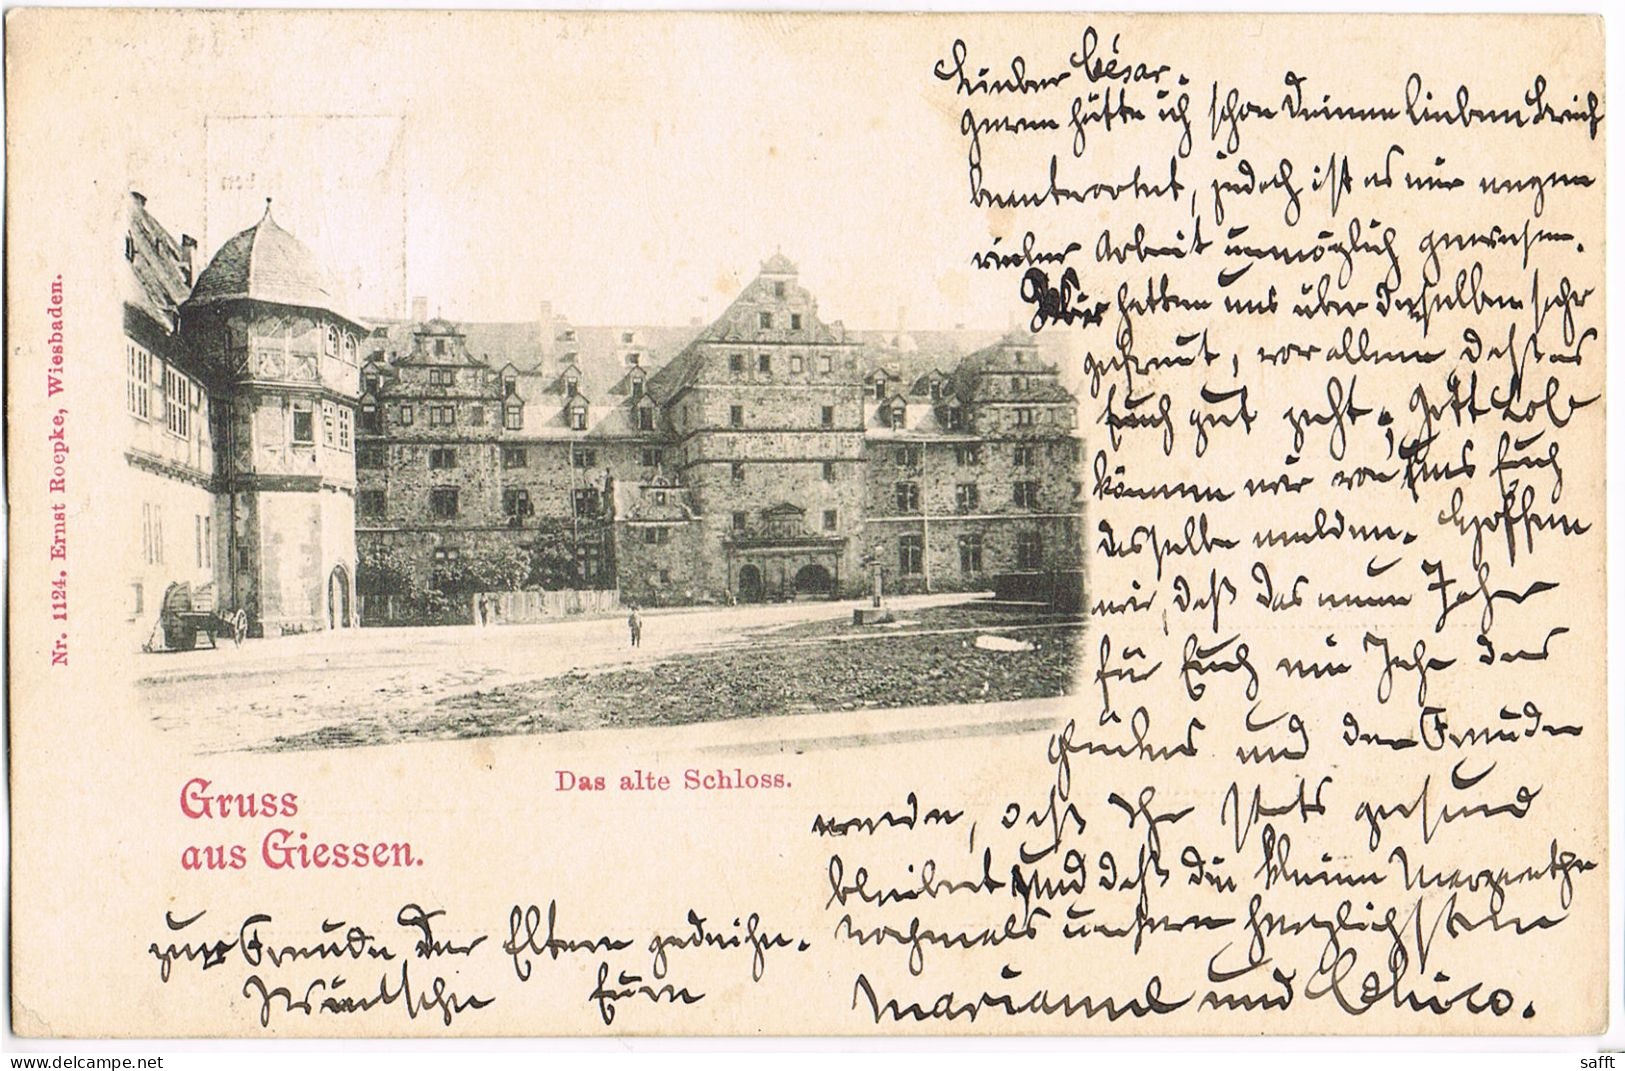 Lieber César.
Gerne hätte ich schon Deinen lieben Brief
beantwortet, jedoch ist es mir wegen
vieler Arbeit unmöglich gewesen.
Wir hatten uns über denselben sehr
gefreut, vor allem, daß es
Euch gut geht, Gott Lob
können wir von uns Euch
dasselbe melden. Hoffen
wir, daß das neue Jahr
für Euch ein Jahr des
Glückes und der Freude
werde, daß Ihr stets gesund
bleibet und daß die kleine Margarethe
zur Freude der Eltern gedeihe.
nochmals unsern herzlichsten
Wünsche Eure
Mariannel und Chico.
Das alte Schloss.
Gruss
aus Giessen.
Nr. 1124. Ernst Roepke, Wiesbaden.
https://www.delcampe.net
safft